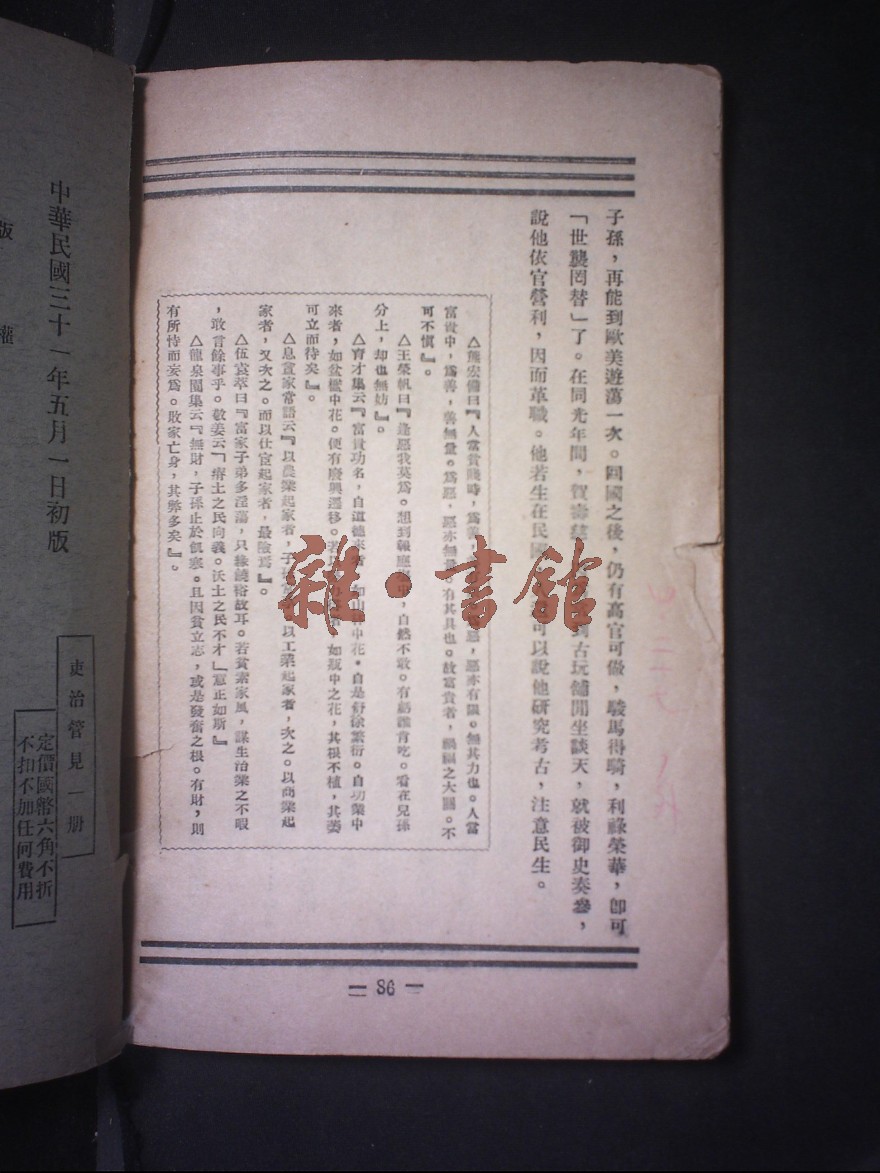 子孫，再能到歐美遊蕩一次。回國之後，仍有高官可做，駿馬得騎，利祿榮華，卽可
「世襲罔替」了。在同光年間，賀壽慈 到古玩舖閒坐談天，就被御史奏參，
說他依官營利，因而革職。他若生在民國 可以說他研究考古，注意民生。
△熊宏備曰『人當貧賤時，爲善， 惡，惡亦有限。無其力也。人當
富貴中，爲善，善無量。爲惡，惡亦無量。有其具也。故富貴者，禍福之大關。不
可不慎』。
△王榮帆曰『逢惡我莫爲。想到報應 中，自然不敢。有虧誰肯吃。看在兒孫
分上，却也無妨』。
△育才集云『富貴功名，自道德來者，如山林中花。自是舒徐繁衍。自功業中
來者，如盆檻中花。便有廢興遷移。若以 ，如瓶中之花，其根不植，其萎
可立而待矣』。
△息賁家常語云『以農業起家者，子孫 以工業起家者，次之。以商業起
家者，又次之。而以仕宦起家者，最險焉』。
△伍袁萃曰『富家子弟多淫蕩，只緣饒裕故耳。若貧素家風，謀生治業之不暇
，敢言餘事乎。敬姜云「瘠土之民向義。沃土之民不才」意正如斯』
△龍泉閣集云『無財，子孫止於飢寒。且因貧立志，或是發奮之根。有財，則
有所恃而妄爲。敗家亡身，其弊多矣』。
86
中華民國三十一年五月一日初版
版 權
吏治管見一册
定價國幣六角不折
不扣不加任何費用
雜·書館